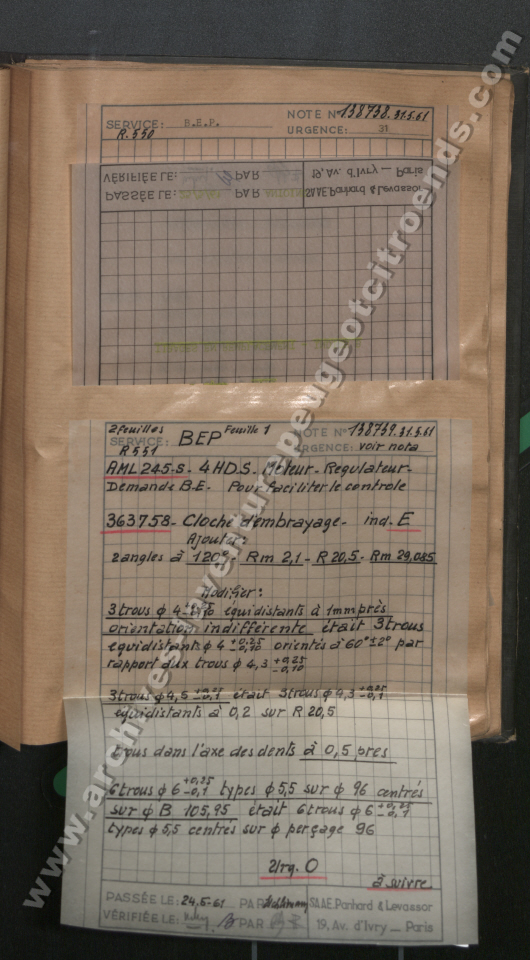 SERVICE: B.E.P. NOTE N° 138738.31.5.61
R.550 URGENCE: 31
VÉRIFIÉE LE: PAR 19, Av. d'Ivry — Paris
PASSÉE LE: PAR S.A.A.E. Panhard & Levassor
2 feuilles Feuille 1 NOTE N° 138739.31.5.61
SERVICE: BEP URGENCE: voir nota
R551
AML 245-S - 4 HD.S. Moteur - Regulateur -
Demande B.E - Pour faciliter le controle
363758 - Cloche d'embrayage - ind. E
Ajouter:
2 angles à 120° - Rm 2,1 - R 20,5 - Rm 29,085
Modifier:
3 trous ϕ 4 équidistants à 1mm près
orientation indifférente était 3 trous
equidistants ϕ 4 +0,25 -0,10 orientés à 60° ±2° par
rapport aux trous ϕ 4,3 +0,25 -0,10
3 trous ϕ 4,5 était 3 trous ϕ 4,3 +0,25 -0,1
équidistants à 0,2 sur R 20,5
trous dans l'axe des dents à 0,5 près
6 trous ϕ 6 +0,25 -0,1 types ϕ 5,5 sur ϕ 96 centrés
sur ϕ B 105,95 était 6 trous ϕ 6 +0,25 -0,1
types ϕ 5,5 centrés sur ϕ perçage 96
Urg. O
à suivre
PASSÉE LE: 24.5-61 PAR S.A.A.E. Panhard & Levassor
VÉRIFIÉE LE: PAR 19, Av. d'Ivry — Paris
www.archivesdelaventurepeugeotcitroends.com